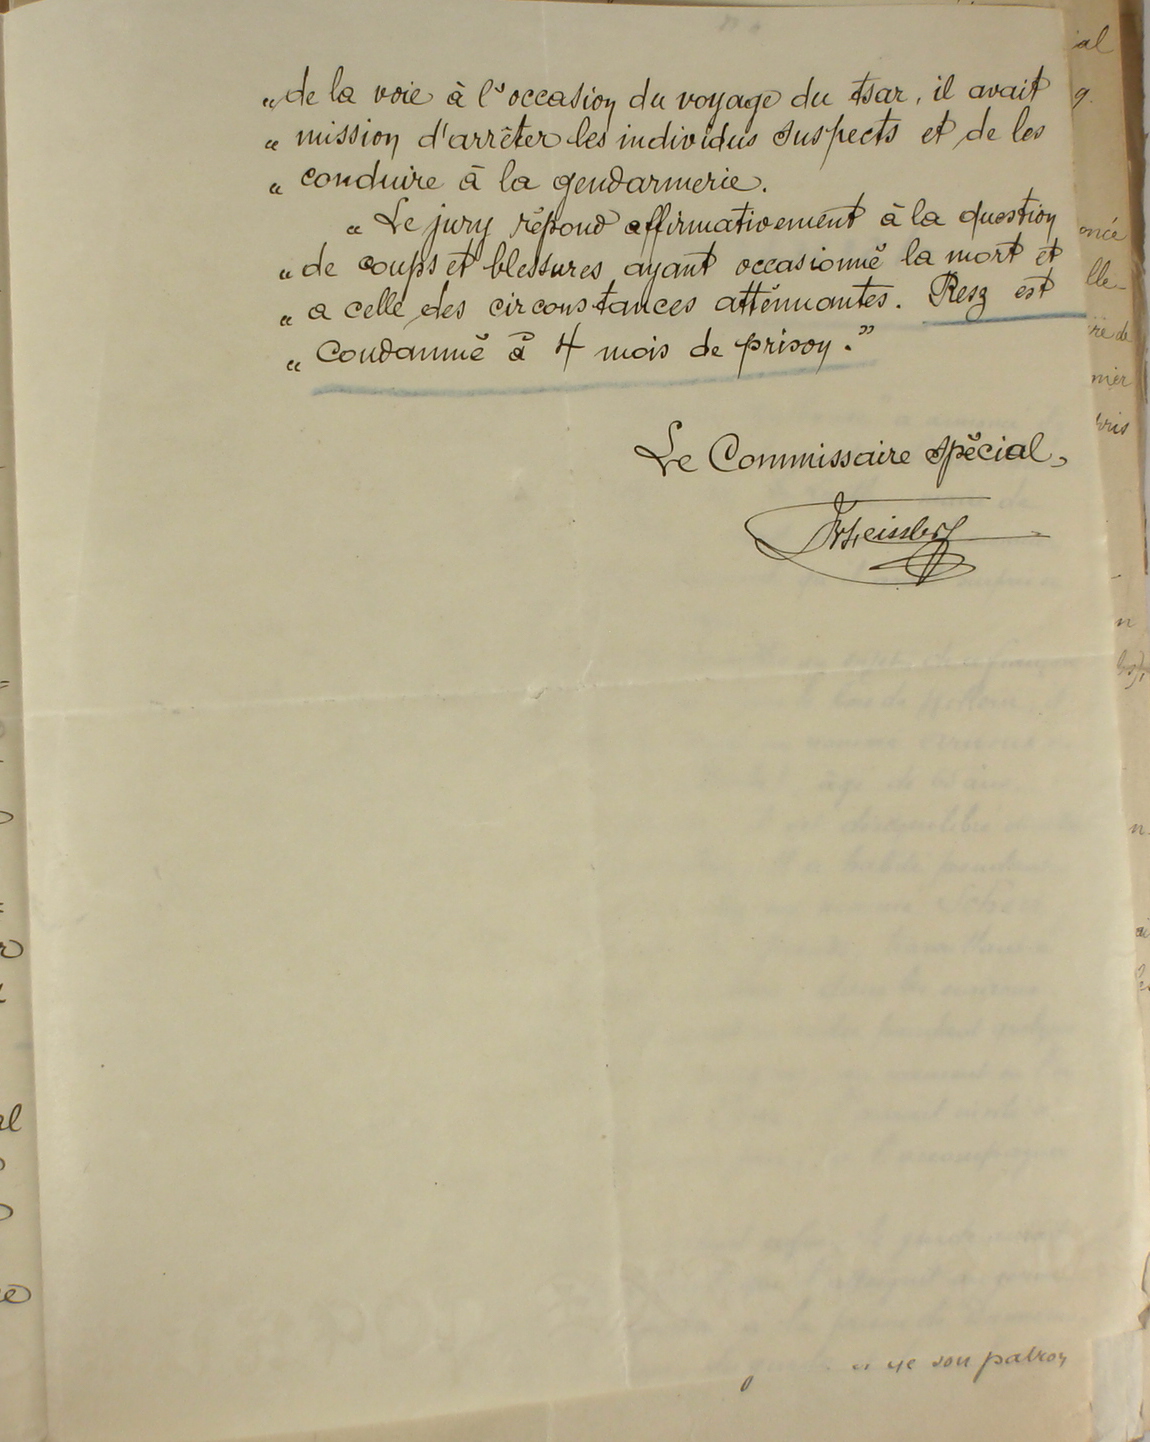 "de la voie à l'occasion du voyage du tsar, il avait
" mission d'arrêter les individus suspects et de les
" conduire à la gendarmerie.
" Le jury répond affirmativement à la question
" de coups et blessures ayant occasionné la mort et
" a celle des circonstances atténuantes. Resz est
" condamné à 4 mois de prison."
Le Commissaire spécial,
son patron